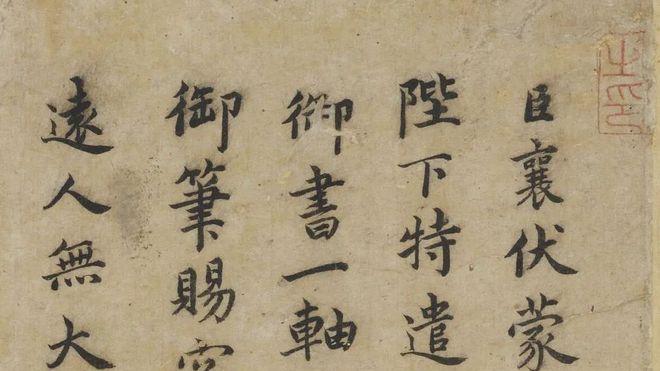 臣襄伏蒙
陛下特遣
御書一軸
御筆賜
遠人無大
之印